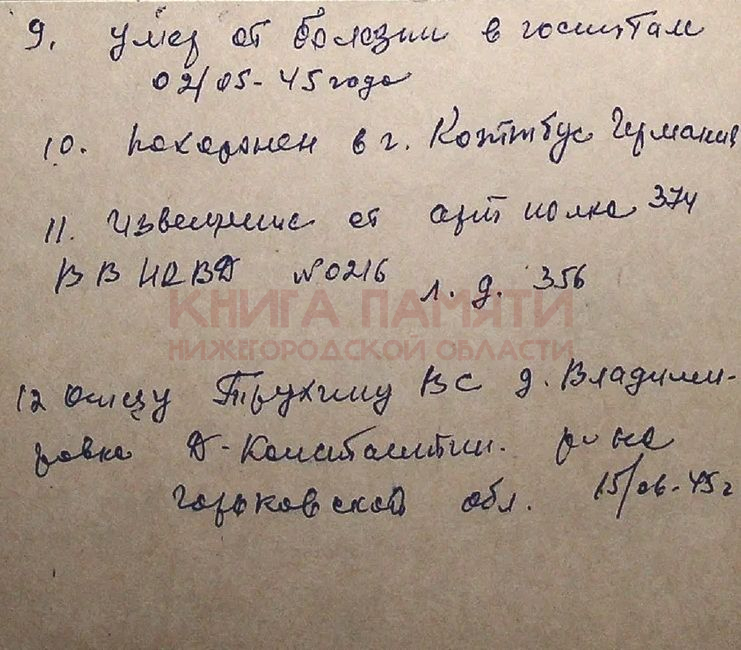 9. умер от болезни в госпитале
02/05-45 года
10. похоронен в г. Коттбус Германия
11. Извещение от арт полка 374
ВВ НКВД №0216 л. д. 356
КНИГА ПАМЯТИ
НИЖЕГОРОДСКОЙ ОБЛАСТИ
12 Отцу Трухину ВС д. Владими-
ровка Д-Константин. р-на
горьковской обл. 15/06-45 г